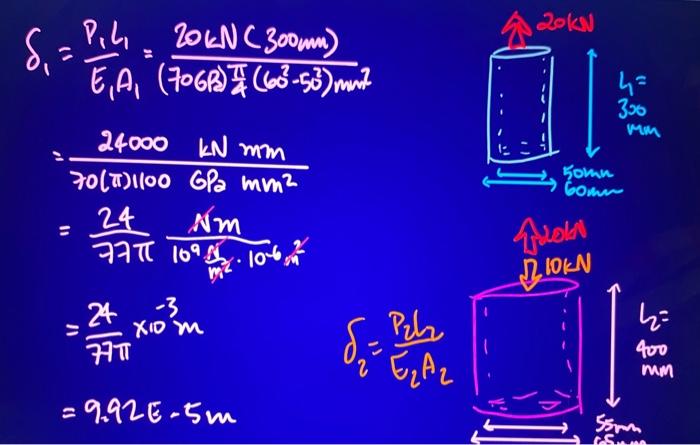 δ₁ = P₁L₁ / E₁A₁ = 20kN(300mm) / (70GPa) π/4 (60²-50²)mm²
= 24000 kN mm / 70(π)1100 GPa mm²
= 24 / 77π Nm / 10⁹ N/m² · 10⁻⁶ m²
= 24 / 77π x10⁻³ m
= 9.92E-5m
20kN
L₁=
300
mm
50mm
60mm
20kN
10kN
δ₂ = P₂L₂ / E₂A₂
L₂=
400
mm
55mm
65mm